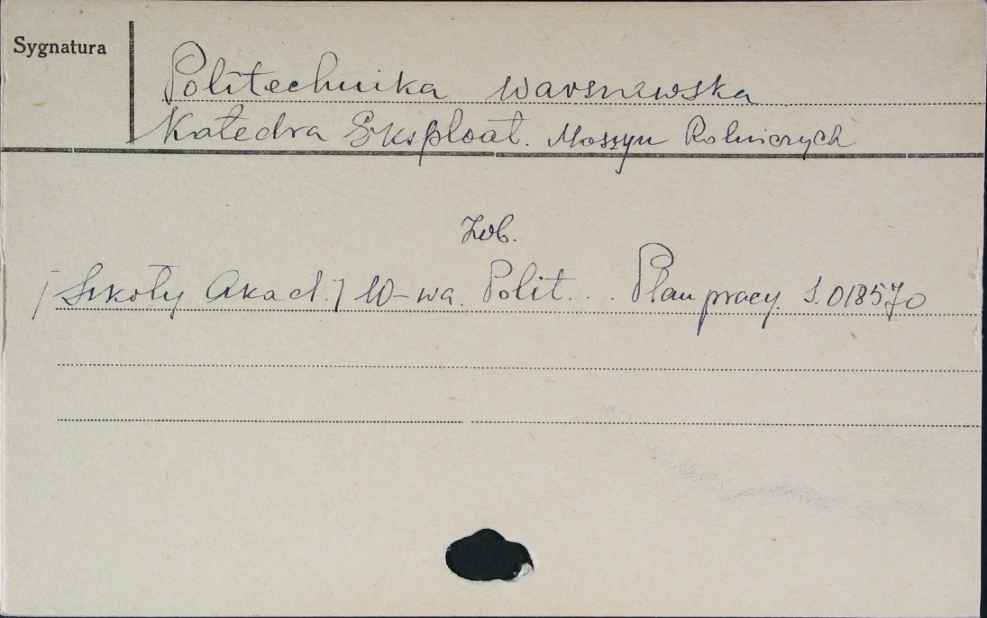 Sygnatura
Politechnika Warszawska
Katedra Eksploat. Maszyn Rolniczych
Zob.
/Szkoły Akad./ W-wa. Polit... Plan pracy. S.018570